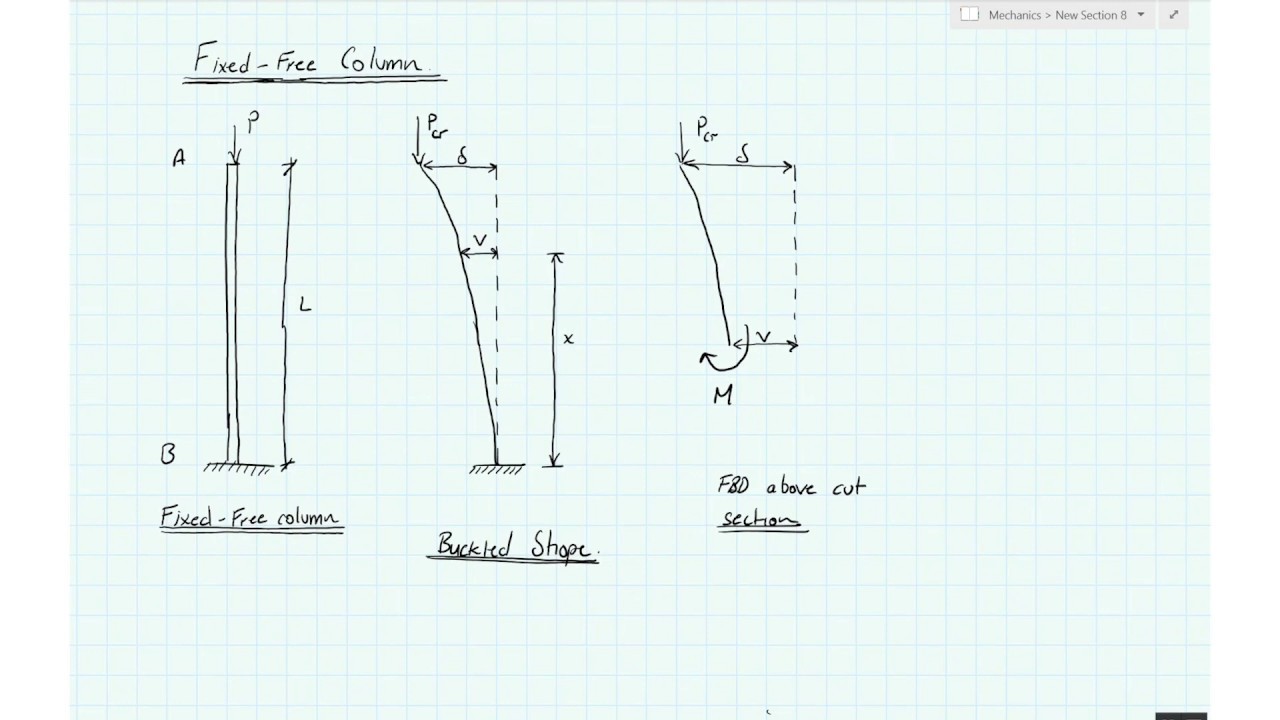 Mechanics > New Section 8
Fixed-Free Column.
P
A
L
B
Fixed-Free column
Pcr
δ
v
x
Buckled Shape.
Pcr
δ
v
M
FBD above cut
section